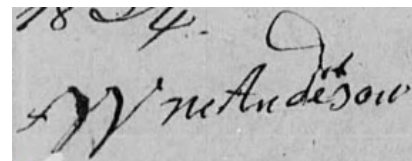 1824.
Wm Anderson